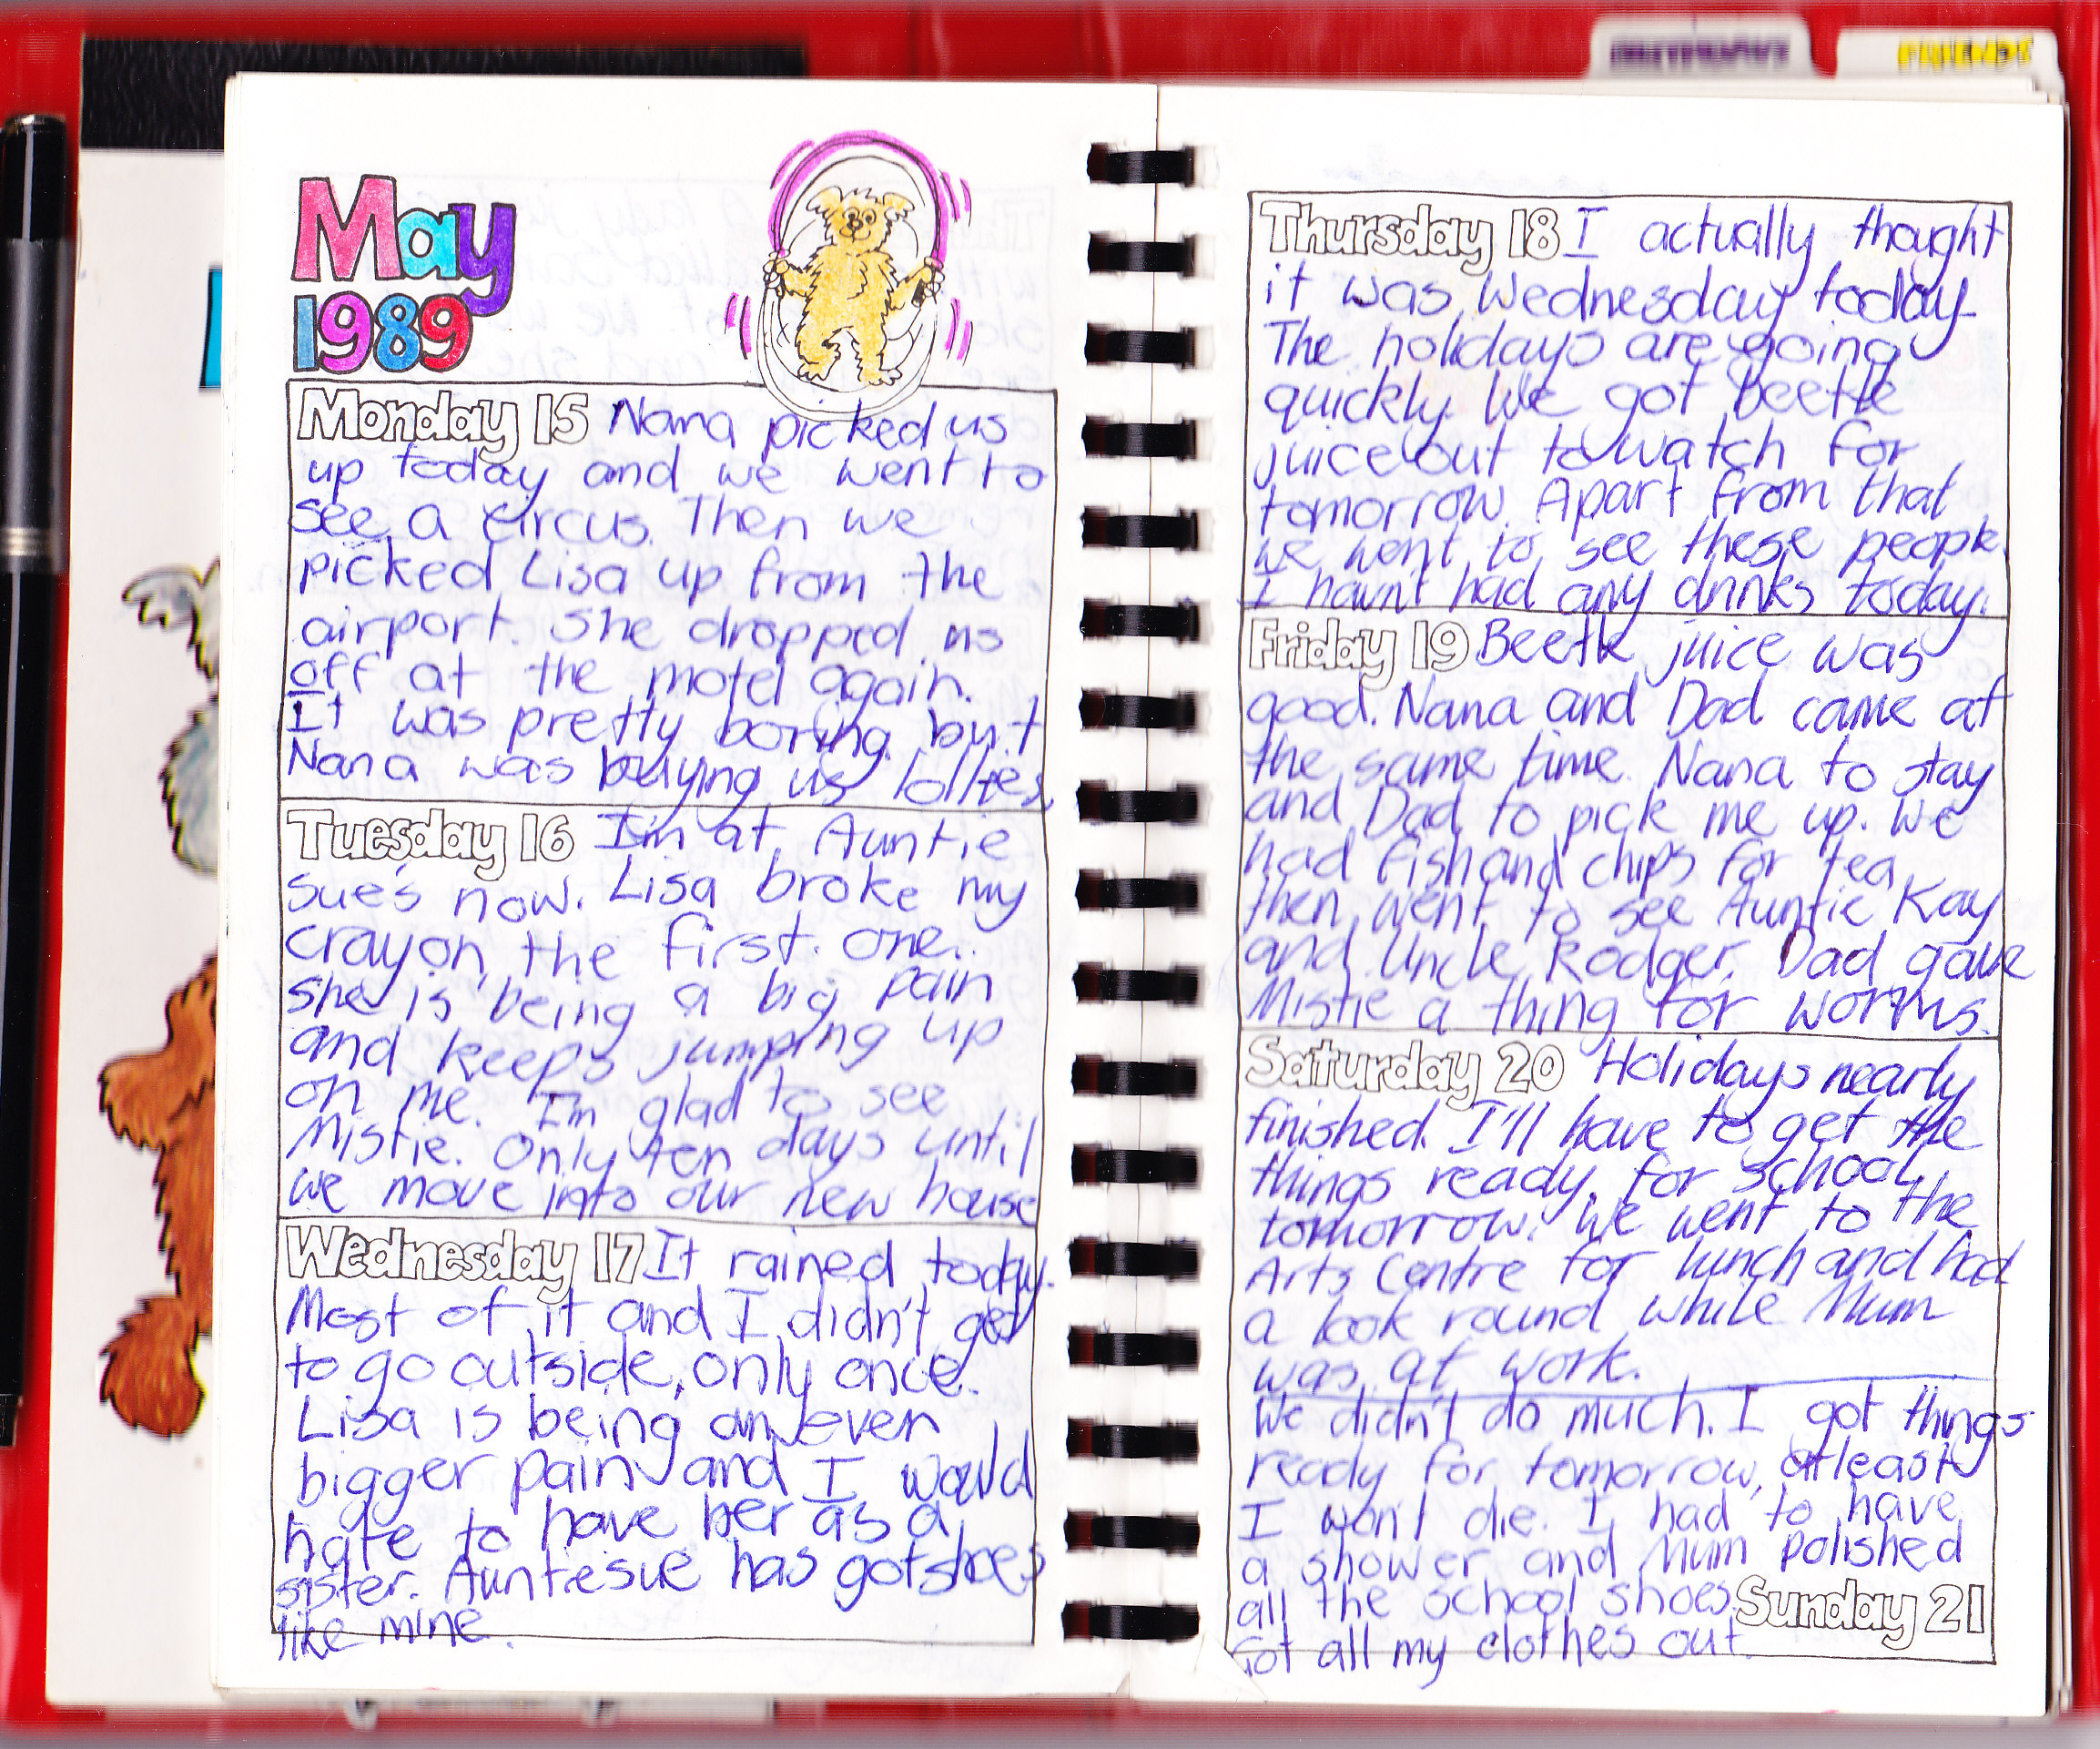 FRIENDS
May
1989
Monday 15 Nana picked us
up today and we went to
see a circus. Then we
picked Lisa up from the
airport. She dropped us
off at the motel again.
It was pretty boring but
Nana was buying us lollies.
Tuesday 16 I'm at Auntie
sue's now. Lisa broke my
crayon, the first one.
she is being a big pain
and keeps jumping up
on me. I'm glad to see
Mistie. Only ten days until
we move into our new house
Wednesday 17 It rained today.
Most of it and I didn't get
to go outside, only once.
Lisa is being an even
bigger pain and I would
hate to have her as a
sister. Auntiesue has got shoes
like mine.
Thursday 18 I actually thought
it was Wednesday today.
The holidays are going
quickly. We got Beetle
juice out to watch for
tomorrow. Apart from that
we went to see these people.
I havn't had any drinks today.
Friday 19 Beetle juice was
good. Nana and Dad came at
the same time. Nana to stay
and Dad to pick me up. We
had fish and chips for tea
then went to see Auntie Kay
and Uncle Rodger. Dad gave
Mistie a thing for worms.
Saturday 20 Holidays nearly
finished. I'll have to get the
things ready for school
tomorrow. We went to the
Arts Centre for lunch and had
a look round while Mum
was at work.
We didn't do much. I got things
ready for tomorrow, atleast
I won't die. I had to have
a shower and Mum polished
all the school shoes. Sunday 21
Got all my clothes out.